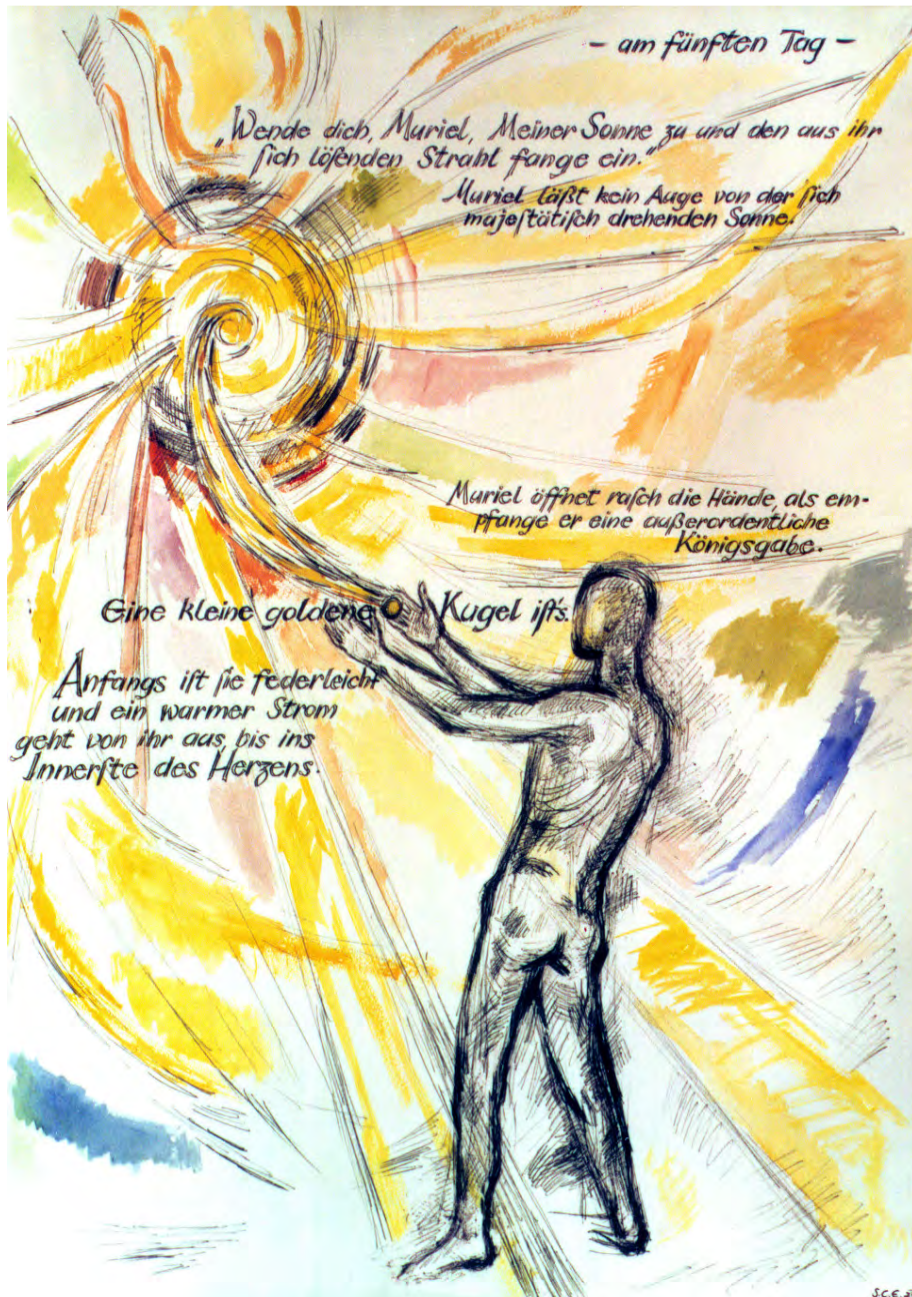 – am fünften Tag –
„Wende dich, Muriel, Meiner Sonne zu und den aus ihr
ſich löſenden Strahl fange ein."
Muriel läßt kein Auge von der ſich
majeſtätiſch drehenden Sonne.
Muriel öffnet raſch die Hände, als em-
pfange er eine außerordentliche
Königsgabe.
Eine kleine goldene Kugel iſt's.
Anfangs iſt ſie federleicht
und ein warmer Strom
geht von ihr aus, bis ins
Innerſte des Herzens.
S.C.E.